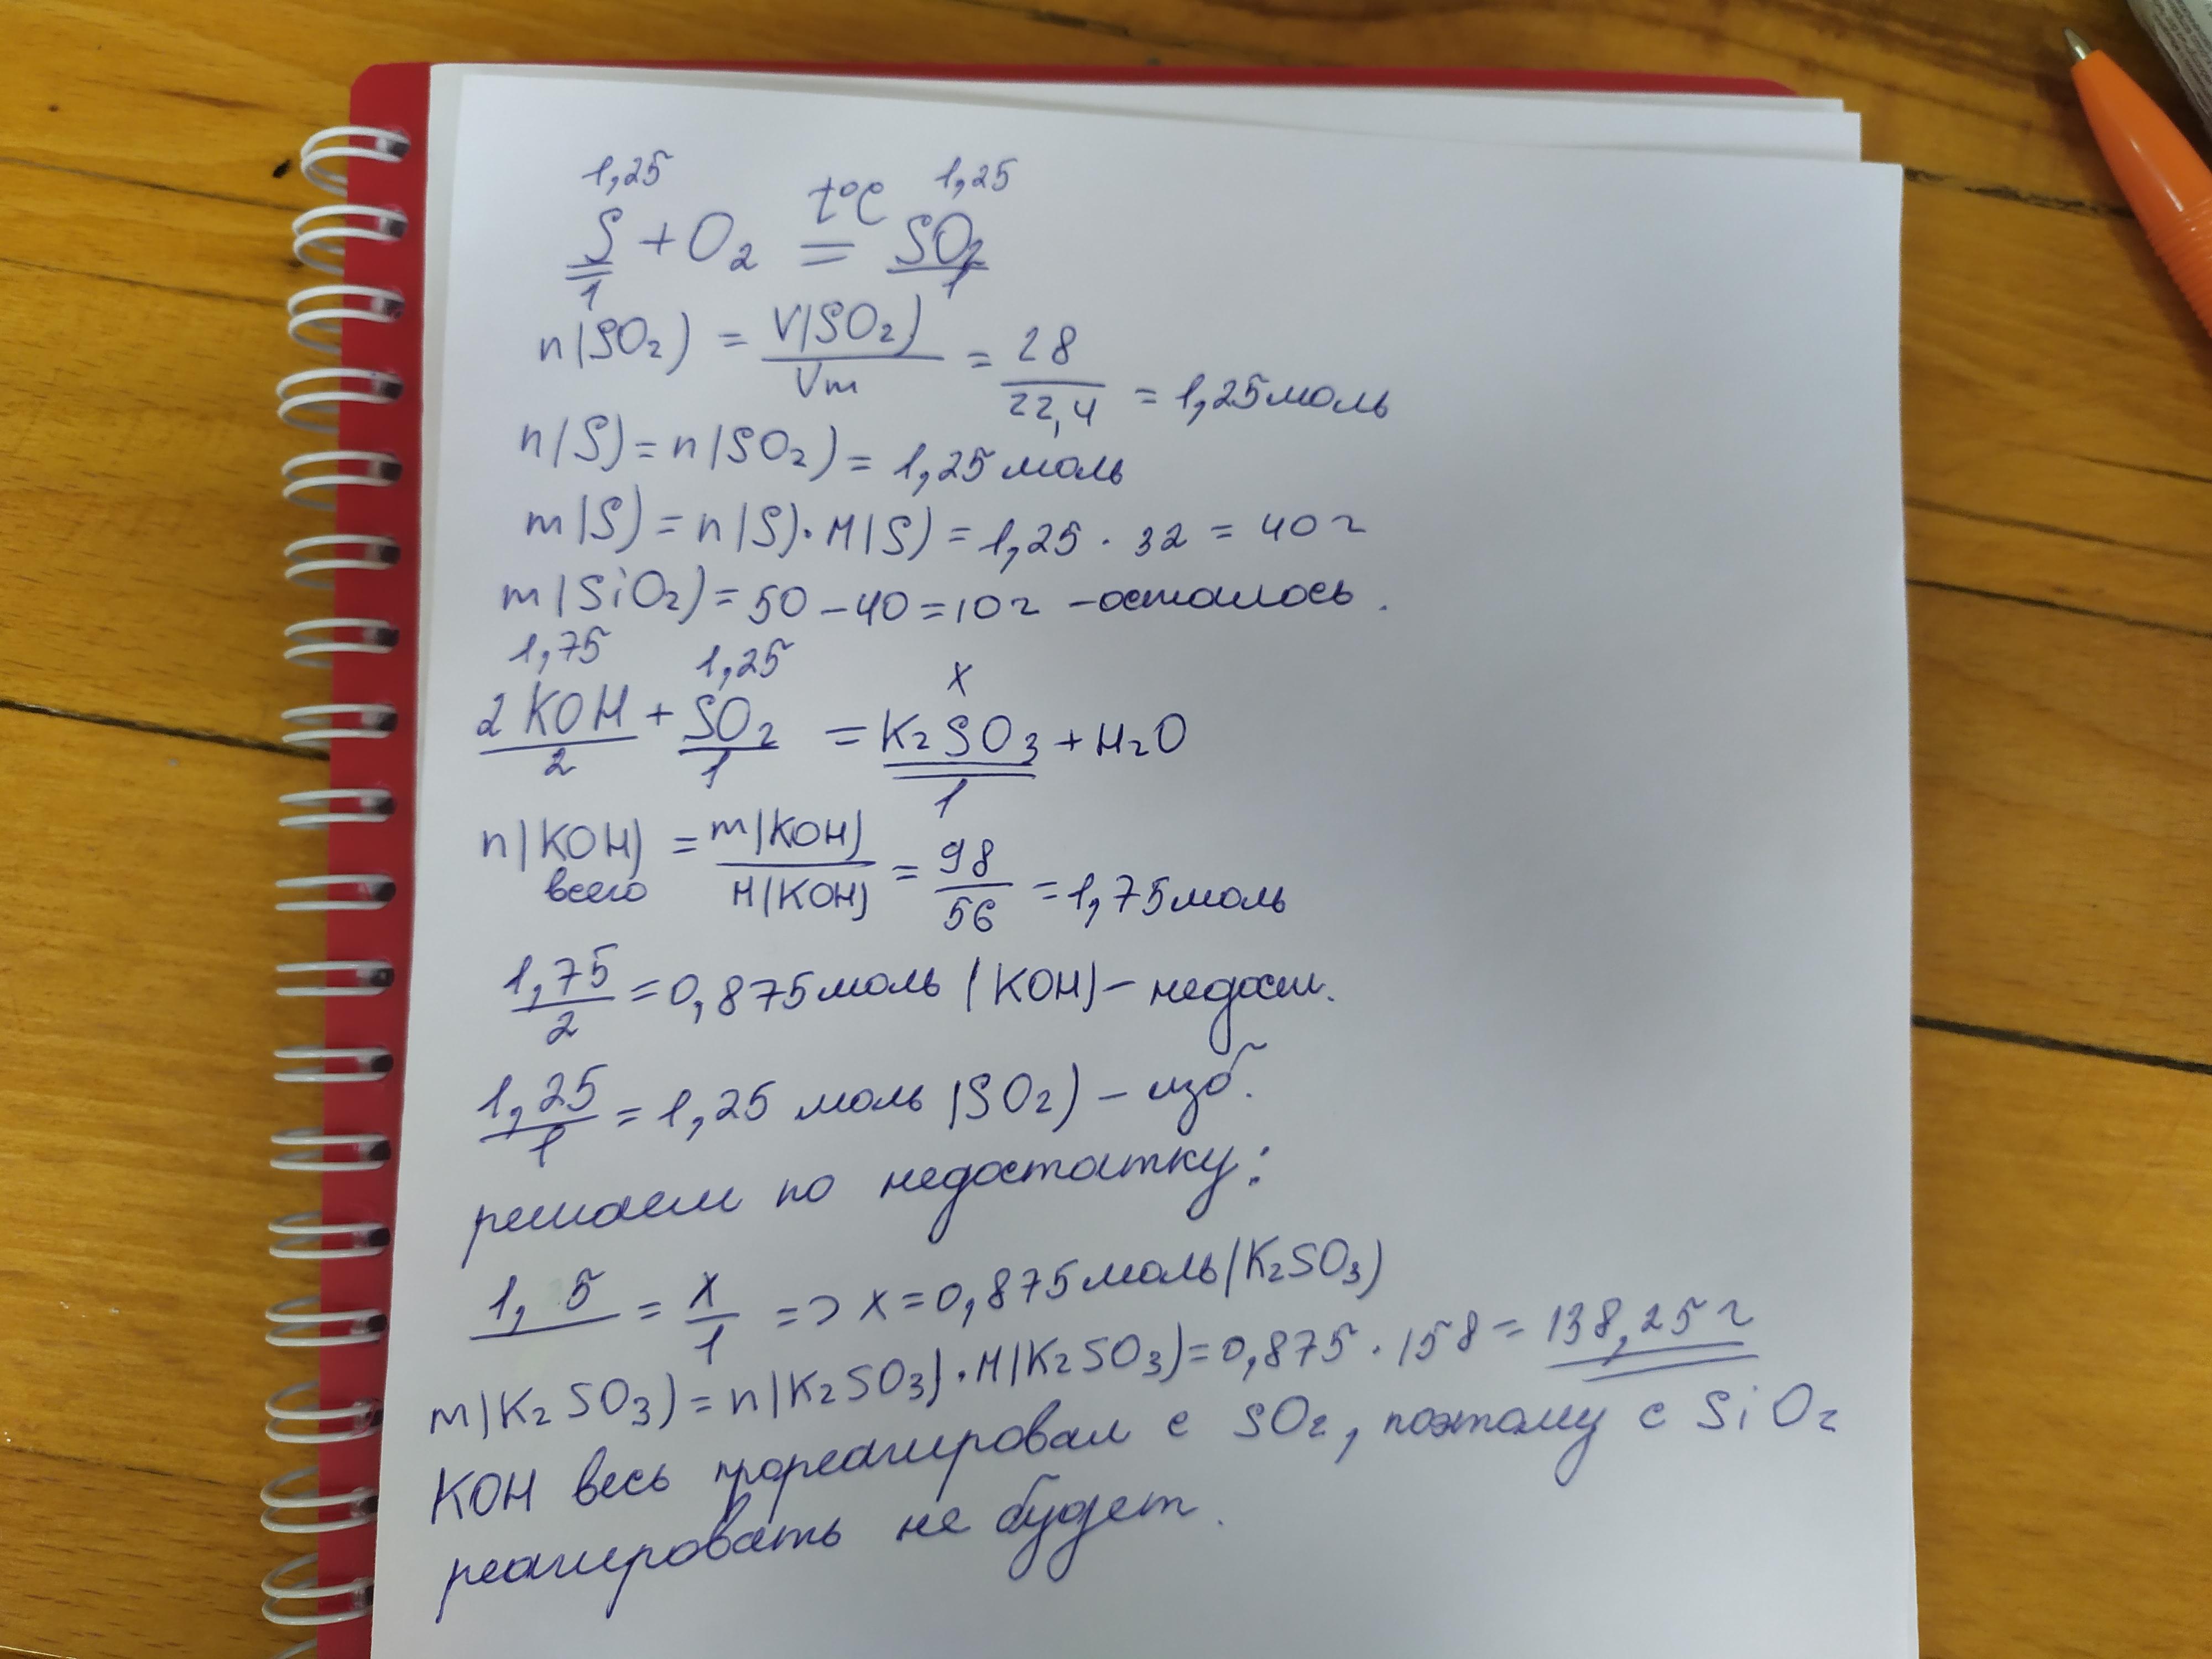 1,25 t°C 1,25
S + O2 = SO2
1 1
n(SO2) = V(SO2) / Vm = 28 / 22,4 = 1,25 моль
n(S) = n(SO2) = 1,25 моль
m(S) = n(S) · M(S) = 1,25 · 32 = 40 г
m(SiO2) = 50 - 40 = 10 г - осталось.
1,75 1,25 x
2KOH + SO2 = K2SO3 + H2O
2 1 1
n(KOH) всего = m(KOH) / M(KOH) = 98 / 56 = 1,75 моль
1,75 / 2 = 0,875 моль (KOH) - недост.
1,25 / 1 = 1,25 моль (SO2) - изб.
решаем по недостатку:
1, 5 = x / 1 => x = 0,875 моль (K2SO3)
m(K2SO3) = n(K2SO3) · M(K2SO3) = 0,875 · 158 = 138,25 г
KOH весь прореагировал с SO2, поэтому с SiO2
реагировать не будет.